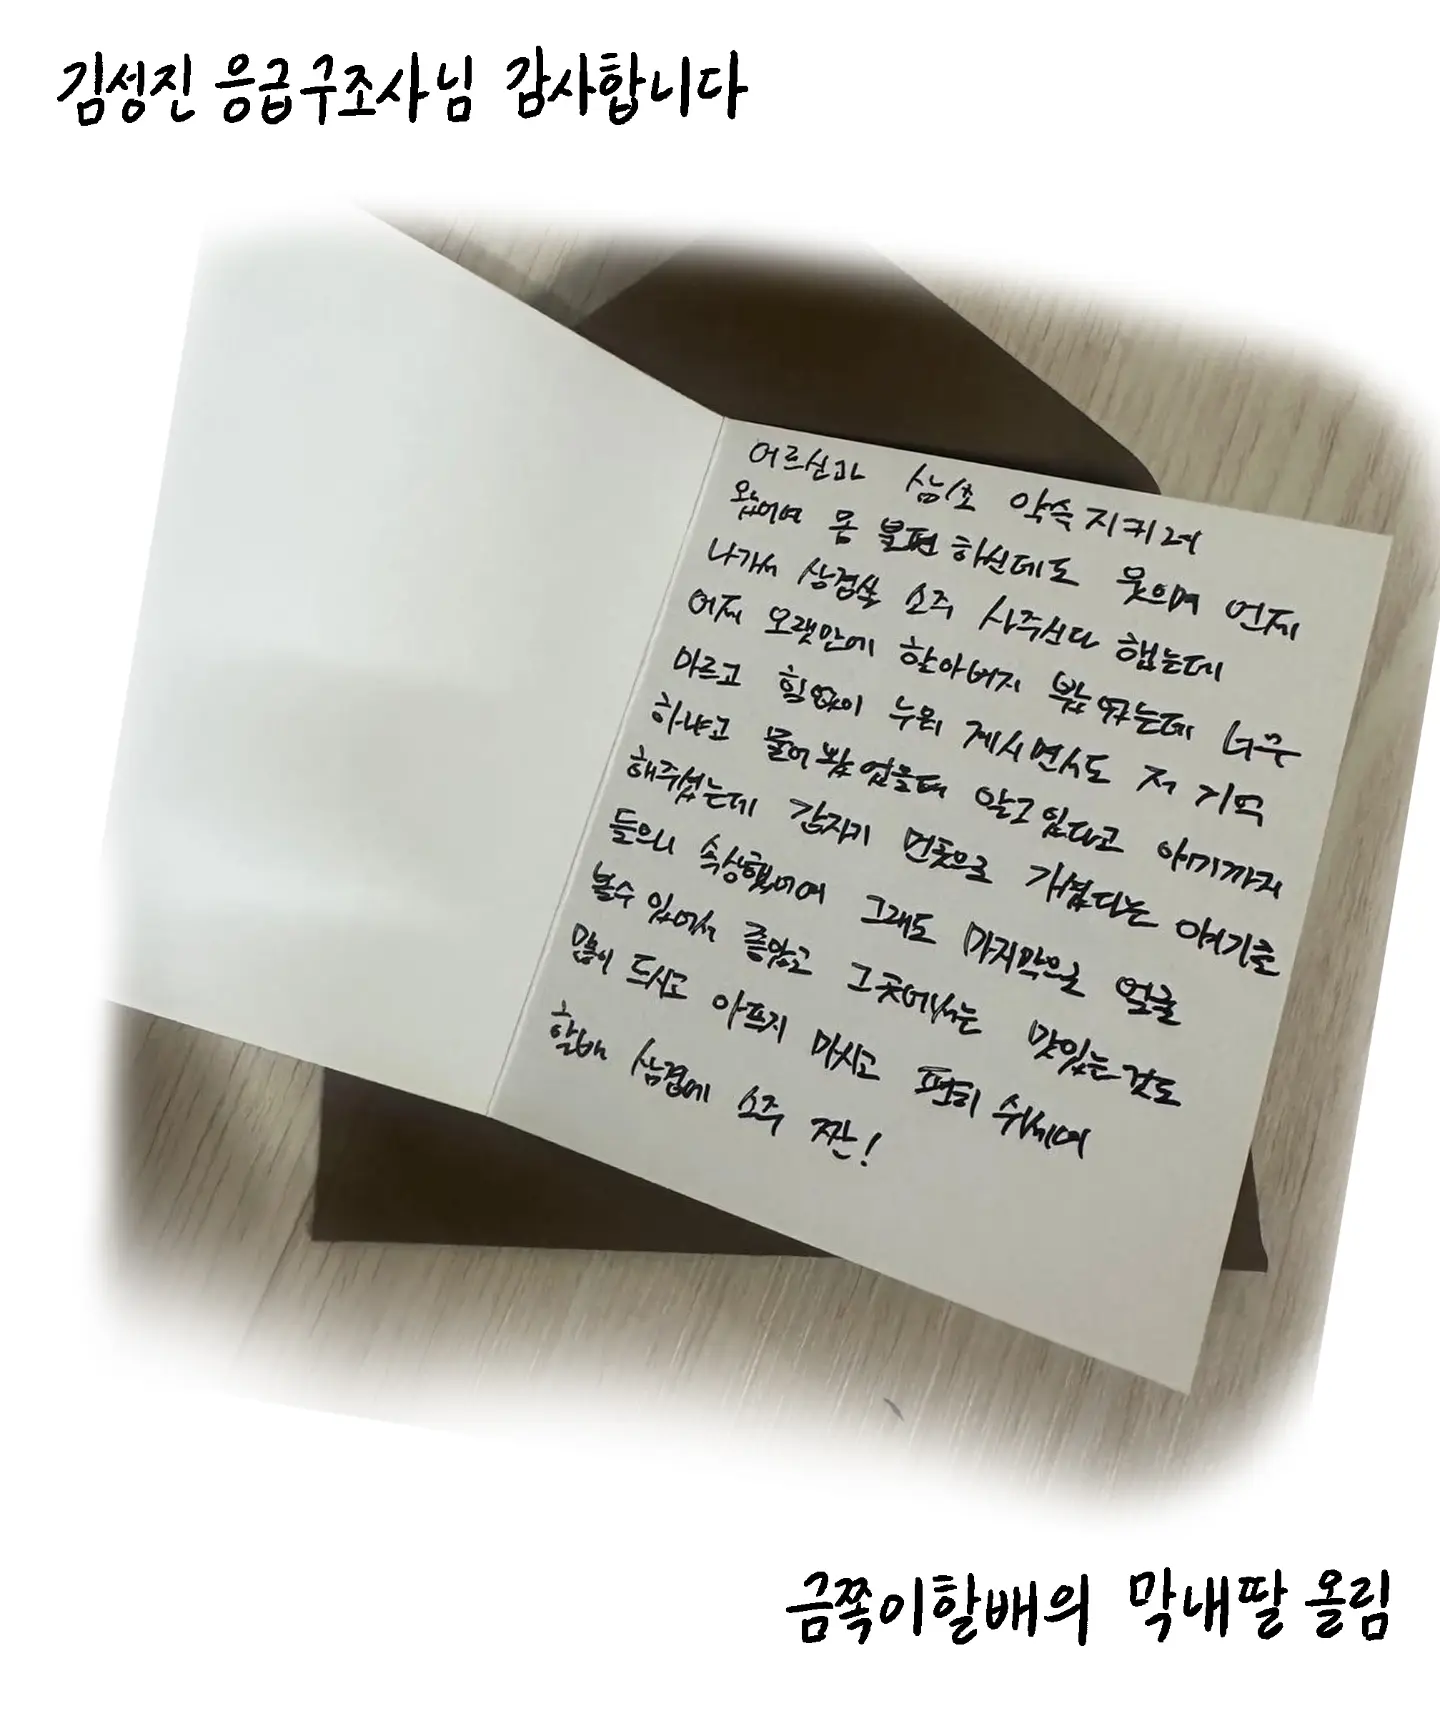 김성진 응급구조사님 감사합니다
어르신과 삼소 약속 지키러
왔어여 몸 불편 하신데도 웃으며 언제
나가서 삼겹살 소주 사주신다 했는데
어제 오랫만에 할아버지 봤었는데 너무
마르고 힘없이 누워 계시면서도 저 기억
하냐고 물어 봤었을때 알고 있다고 얘기까지
해주셨는데 갑자기 먼곳으로 가셨다는 얘기를
들으니 속상했어여 그래도 마지막으로 얼굴
볼수 있어서 좋았고 그곳에서는 맛있는것도
많이 드시고 아프지 마시고 편히 쉬세여
할배 삼겹에 소주 짠!
금쪽이할배의 막내딸 올림